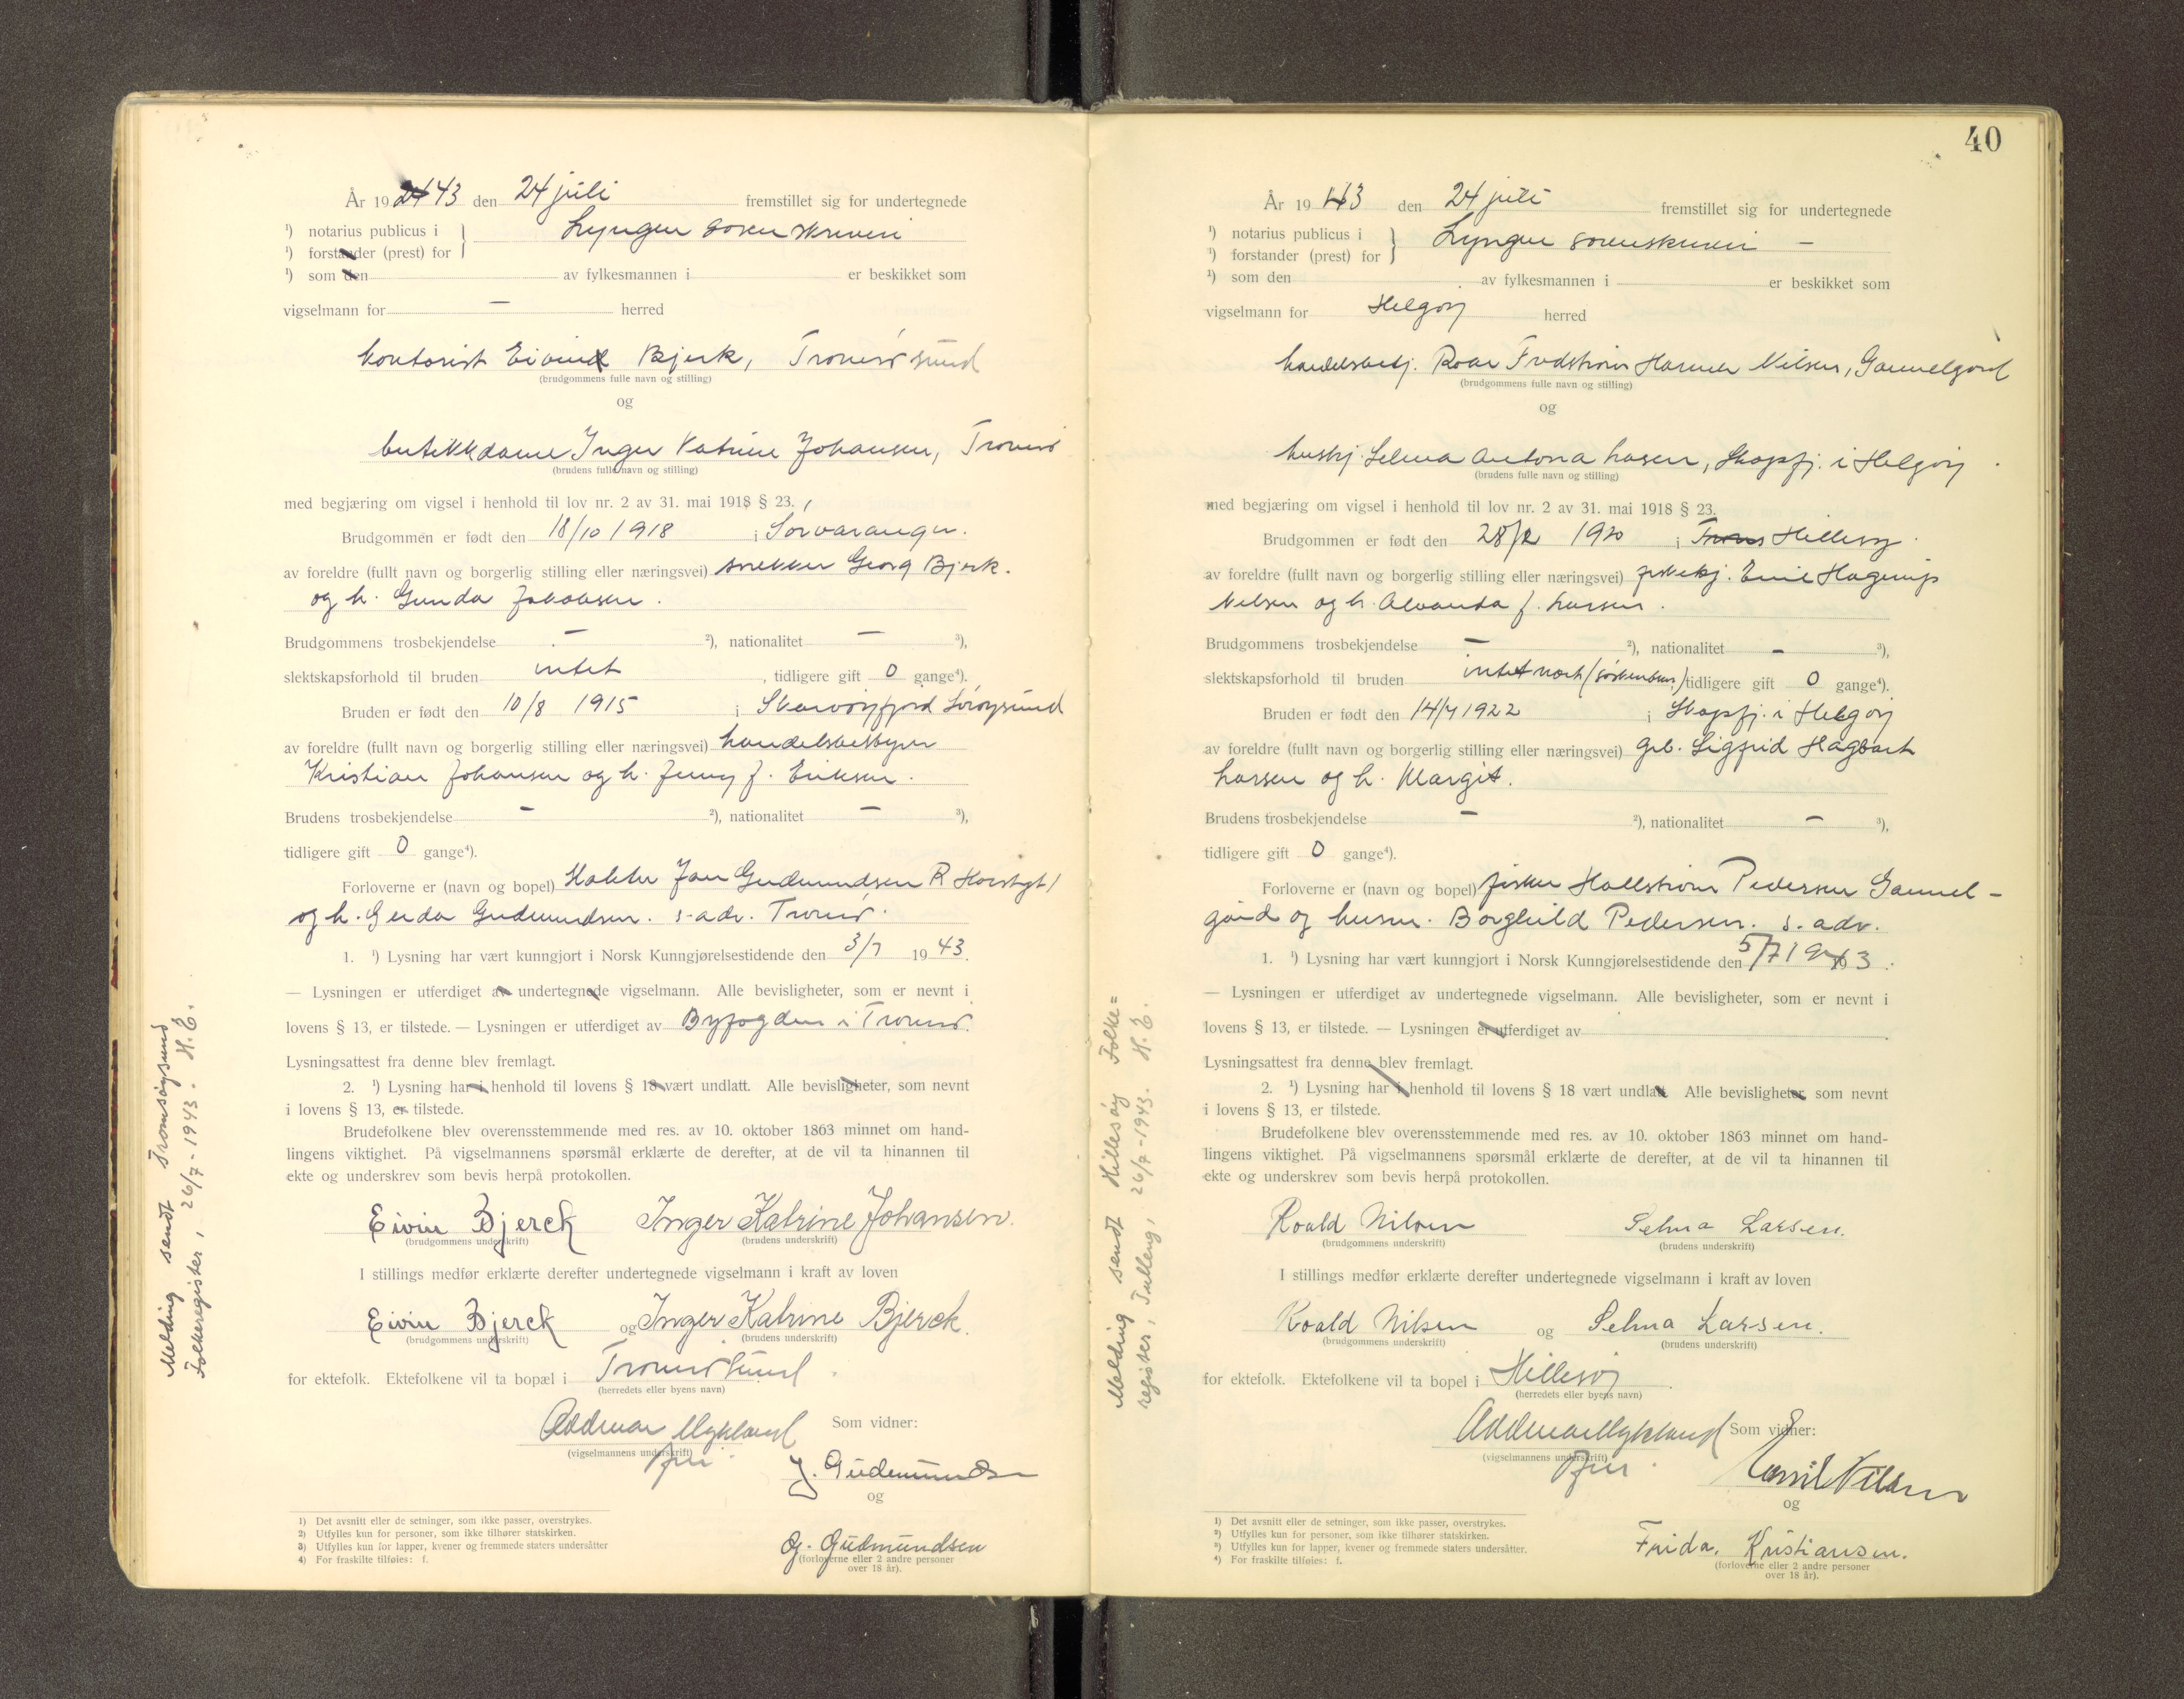 År 1943 den 24 juli fremstillet sig for undertegnede
¹) notarius publicus i
Lyngen sorenskriveri
¹) forstander (prest) for
¹) som den av fylkesmannen i er beskikket som
vigselmann for — herred
kontorist Eivind Bjerk, Tromsøsund
(brudgommens fulle navn og stilling)
og
butikkdame Inger Katrine Johansen, Tromsø
(brudens fulle navn og stilling)
med begjæring om vigsel i henhold til lov nr. 2 av 31. mai 1918 § 23.
Brudgommen er født den 18/10 1918 i Sørvaranger.
av foreldre (fullt navn og borgerlig stilling eller næringsvei) snekker Georg Bjerk.
og h. Gunda Jakobsen.
Brudgommens trosbekjendelse — ²), nationalitet — ³),
slektskapsforhold til bruden intet, tidligere gift 0 gange⁴).
Bruden er født den 10/8 1915 i Skarvøyfjord Sørøysund
av foreldre (fullt navn og borgerlig stilling eller næringsvei) handelsbestyrer
Kristian Johansen og h. Jenny f. Eriksen.
Brudens trosbekjendelse — ²), nationalitet — ³),
tidligere gift 0 gange⁴).
Forloverne er (navn og bopel) Jan Gudmundsen R
og h. Gerda Gudmundsen. s. adr. Tromsø.
1. ¹) Lysning har vært kunngjort i Norsk Kunngjørelsestidende den 3/7 1943.
— Lysningen er utferdiget av undertegnede vigselmann. Alle bevisligheter, som er nevnt i
lovens § 13, er tilstede. — Lysningen er utferdiget av Byfogden i Tromsø.
Lysningsattest fra denne blev fremlagt.
2. ¹) Lysning har i henhold til lovens § 18 vært undlatt. Alle bevisligheter, som nevnt
i lovens § 13, er tilstede.
Brudefolkene blev overensstemmende med res. av 10. oktober 1863 minnet om hand-
lingens viktighet. På vigselmannens spørsmål erklærte de derefter, at de vil ta hinannen til
ekte og underskrev som bevis herpå protokollen.
Eivin Bjerck Inger Katrine Johansen.
(brudgommens underskrift) (brudens underskrift)
I stillings medfør erklærte derefter undertegnede vigselmann i kraft av loven
Eivin Bjerck og Inger Katrine Bjerck.
(brudgommens underskrift) (brudens underskrift)
for ektefolk. Ektefolkene vil ta bopæl i Tromsøsund
(herredets eller byens navn)
Oddmar Mykland Som vidner:
(vigselmannens underskrift)
J. Gudmundsen
og
G. Gudmundsen
(forloverne eller 2 andre personer
over 18 år).
1) Det avsnitt eller de setninger, som ikke passer, overstrykes.
2) Utfylles kun for personer, som ikke tilhører statskirken.
3) Utfylles kun for lapper, kvener og fremmede staters undersåtter
4) For fraskilte tilføies: f.
Melding sendt Tromsøysund
Folkeregister, 26/7-1943. H.E.
40
År 1943 den 24 juli fremstillet sig for undertegnede
¹) notarius publicus i
Lyngen sorenskriveri —
¹) forstander (prest) for
¹) som den av fylkesmannen i er beskikket som
vigselmann for Helgøy herred
handelsbetj. Roar Fredstrøm Nilsen, Gammelgård
(brudgommens fulle navn og stilling)
og
hushj. Selma Antona Larsen, Skogsfj. i Helgøy
(brudens fulle navn og stilling)
med begjæring om vigsel i henhold til lov nr. 2 av 31. mai 1918 § 23.
Brudgommen er født den 28/2 1920 i Troms Hillesøy
av foreldre (fullt navn og borgerlig stilling eller næringsvei) Emil Hagerup
Nilsen og h. Alvanda f. Larsen.
Brudgommens trosbekjendelse — ²), nationalitet — ³),
slektskapsforhold til bruden intet nært (søskenbarn) tidligere gift 0 gange⁴).
Bruden er født den 14/7 1922 i Skogsfj. i Helgøy
av foreldre (fullt navn og borgerlig stilling eller næringsvei) grb. Sigfrid Hagbart
Larsen og h. Margit.
Brudens trosbekjendelse — ²), nationalitet — ³),
tidligere gift 0 gange⁴).
Forloverne er (navn og bopel) fisker Hallstrøm Pedersen Gammel-
gård og hustru. Borghild Pedersen. s. adr.
1. ¹) Lysning har vært kunngjort i Norsk Kunngjørelsestidende den 5/7 1943.
— Lysningen er utferdiget av undertegnede vigselmann. Alle bevisligheter, som er nevnt i
lovens § 13, er tilstede. — Lysningen er utferdiget av
Lysningsattest fra denne blev fremlagt.
2. ¹) Lysning har i henhold til lovens § 18 vært undlatt. Alle bevisligheter, som nevnt
i lovens § 13, er tilstede.
Brudefolkene blev overensstemmende med res. av 10. oktober 1863 minnet om hand-
lingens viktighet. På vigselmannens spørsmål erklærte de derefter, at de vil ta hinannen til
ekte og underskrev som bevis herpå protokollen.
Roald Nilsen Selma Larsen.
(brudgommens underskrift) (brudens underskrift)
I stillings medfør erklærte derefter undertegnede vigselmann i kraft av loven
Roald Nilsen og Selma Larsen.
(brudgommens underskrift) (brudens underskrift)
for ektefolk. Ektefolkene vil ta bopel i Hillesøy
(herredets eller byens navn)
Oddmar Mykland Som vidner:
(vigselmannens underskrift)
Emil Nilsen
og
Frida. Kristiansen.
(forloverne eller 2 andre personer
over 18 år).
1) Det avsnitt eller de setninger, som ikke passer, overstrykes.
²) Utfylles kun for personer, som ikke tilhører statskirken.
³) Utfylles kun for lapper, kvener og fremmede staters undersåtter.
⁴) For fraskilte tilføies: f.
Melding sendt Hillesøy Folke=
register, Tulleng, 26/7-1943. H.E.